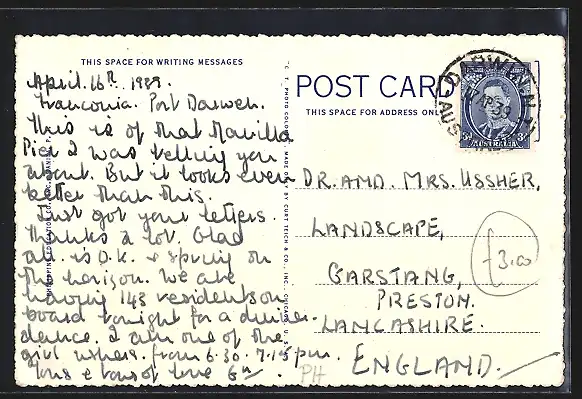 THIS SPACE FOR WRITING MESSAGES
POST CARD
THIS SPACE FOR ADDRESS ONLY
April. 16th. 1939.
Franconia. Port Darwen.
This is of that Manilla
Pier I was telling you
about. But it looks even
better than this.
Just got your letters.
Thanks a lot. Glad
all is O.K. & spring on
the horizon. We are
having 143 residents on
board tonight for a dinner-
dance. I am one of the
girl ushers. from 6.30. 7.15 pm.
Tons & tons of love
DR. AND. MRS. USSHER,
LANDSCAPE,
GARSTANG,
PRESTON.
LANCASHIRE.
ENGLAND.
£3.00
PH
DARWIN
AUSTRALIA
3D